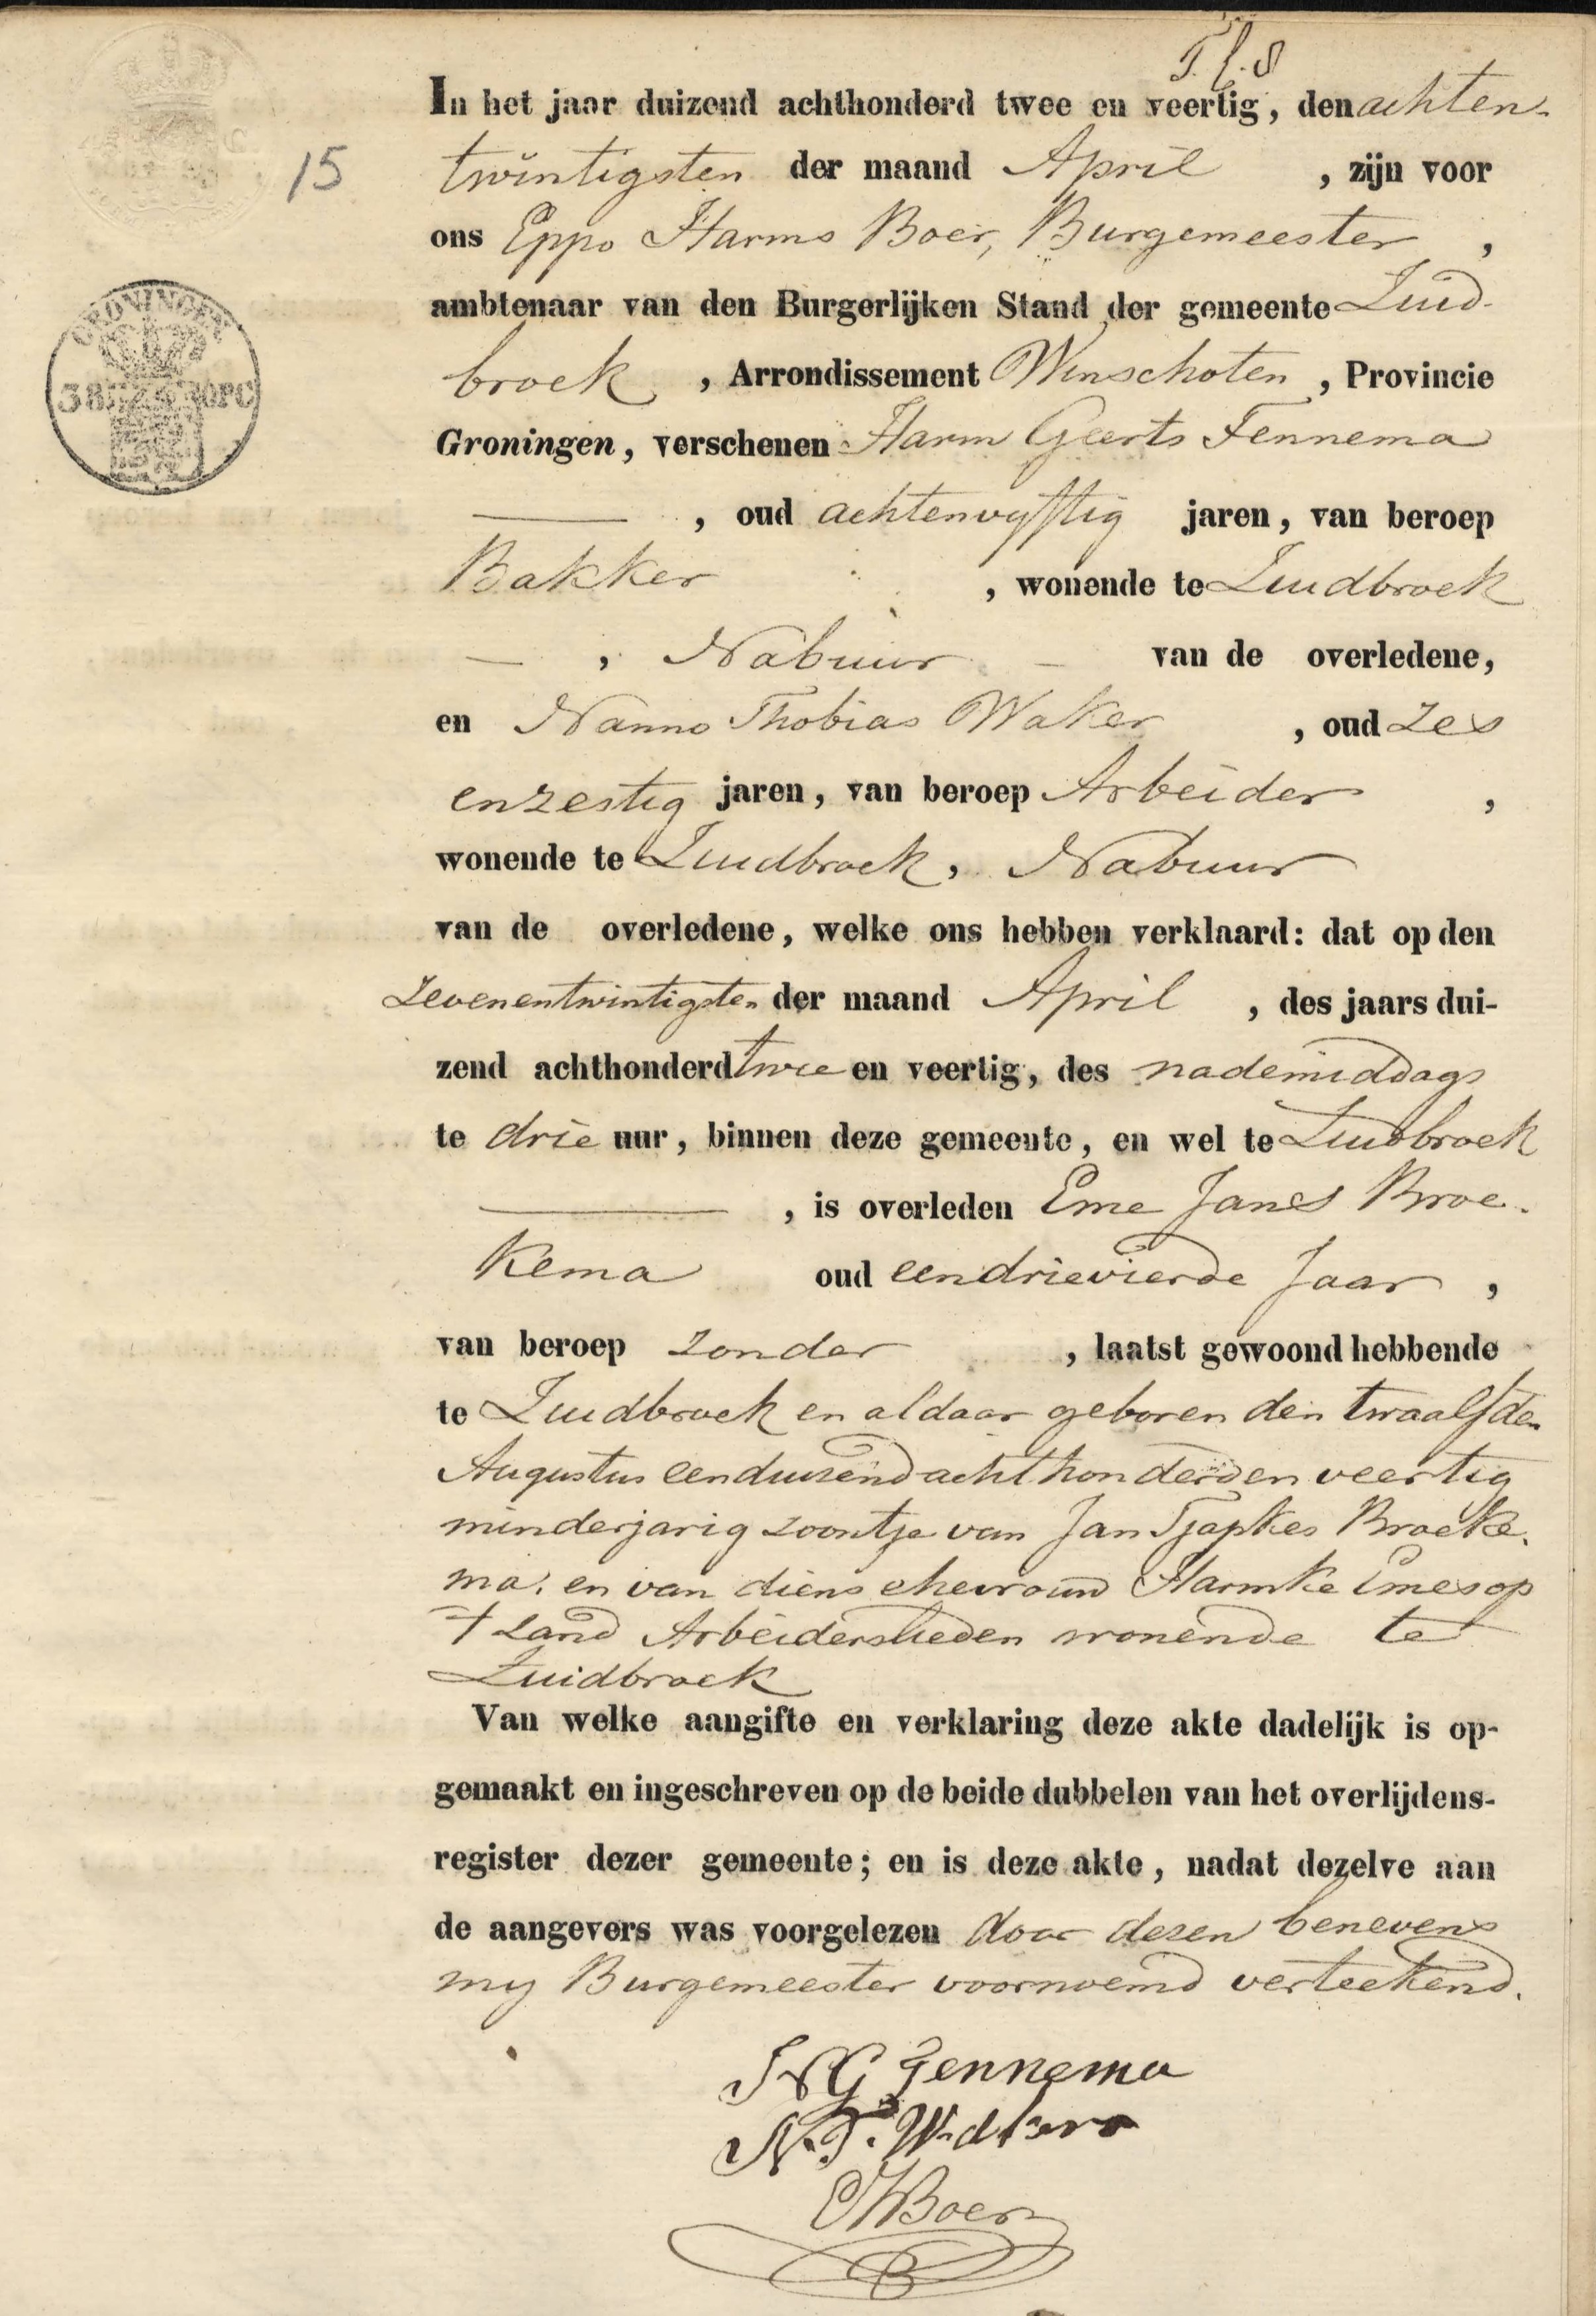 In het jaar duizend achthonderd twee en veertig, den achten-
15 twintigsten der maand April , zijn voor
ons Eppo Harms Boer, Burgemeester ,
ambtenaar van den Burgerlijken Stand der gemeente Zuid-
broek , Arrondissement Winschoten , Provincie
GRONINGEN
Groningen, verschenen Harm Geerts Fennema
, oud achtenvyftig jaren, van beroep
Bakker , wonende te Zuidbroek
, Nabuur van de overledene,
en Nanno Thobias Waker , oud zes
enzestig jaren, van beroep Arbeider ,
wonende te Zuidbroek, Nabuur
van de overledene, welke ons hebben verklaard: dat op den
zevenentwintigsten der maand April , des jaars dui-
zend achthonderd twee en veertig, des nademiddags
te drie uur, binnen deze gemeente, en wel te Zuidbroek
, is overleden Eme Jans Broe-
kema oud eendrievierde Jaar ,
van beroep zonder , laatst gewoond hebbende
te Zuidbroek en aldaar geboren den twaalfden
Augustus eenduizend achthonderd en veertig
minderjarig zoontje van Jan Tjapkes Broeke-
ma, en van diens ehevrouw Harmke Emes op
't Land Arbeiderslieden wonende te
Zuidbroek
Van welke aangifte en verklaring deze akte dadelijk is op-
gemaakt en ingeschreven op de beide dubbelen van het overlijdens-
register dezer gemeente; en is deze akte, nadat dezelve aan
de aangevers was voorgelezen door dezen benevens
my Burgemeester voornoemd verteekend.
H G Fennema
N. T. Wakers
EHBoer